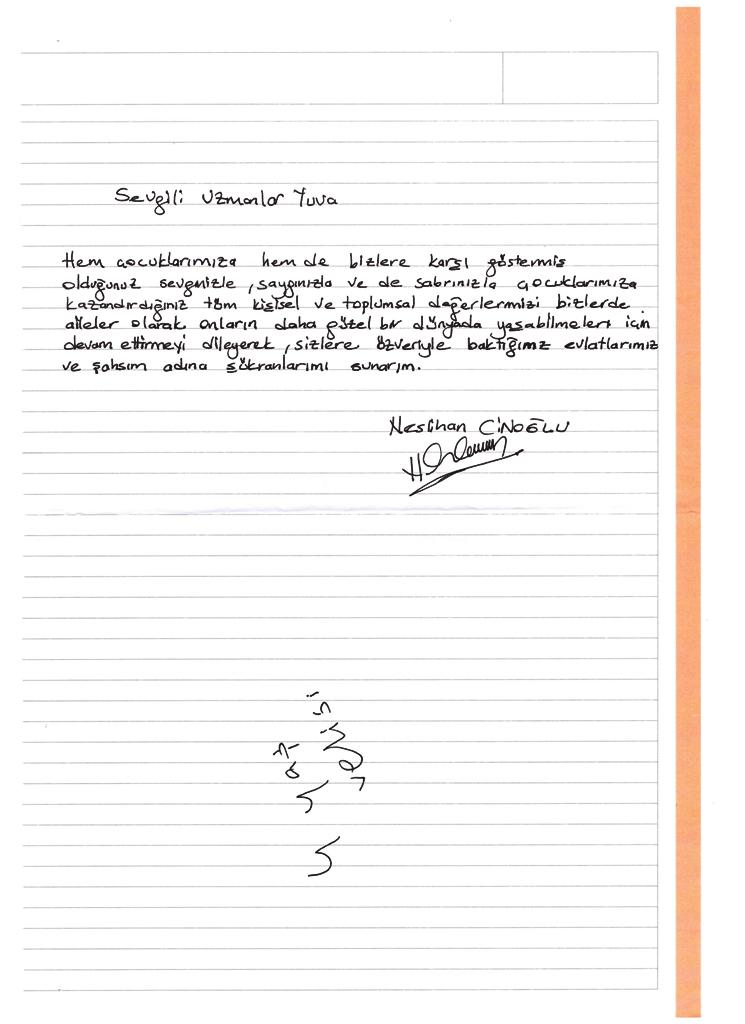 Sevgili Uzmanlar Yuva
Hem çocuklarımıza hem de bizlere karşı göstermiş
olduğunuz sevginizle, saygınızla ve de sabrınızla çocuklarımıza
kazandırdığınız tüm kişisel ve toplumsal değerlermizi bizlerde
aileler olarak onların daha güzel bir dünyada yaşabilmeleri için
devam ettirmeyi dileyerek, sizlere özveriyle baktığımız evlatlarımız
ve şahsım adına şükranlarımı sunarım.
Neslihan CİNOĞLU